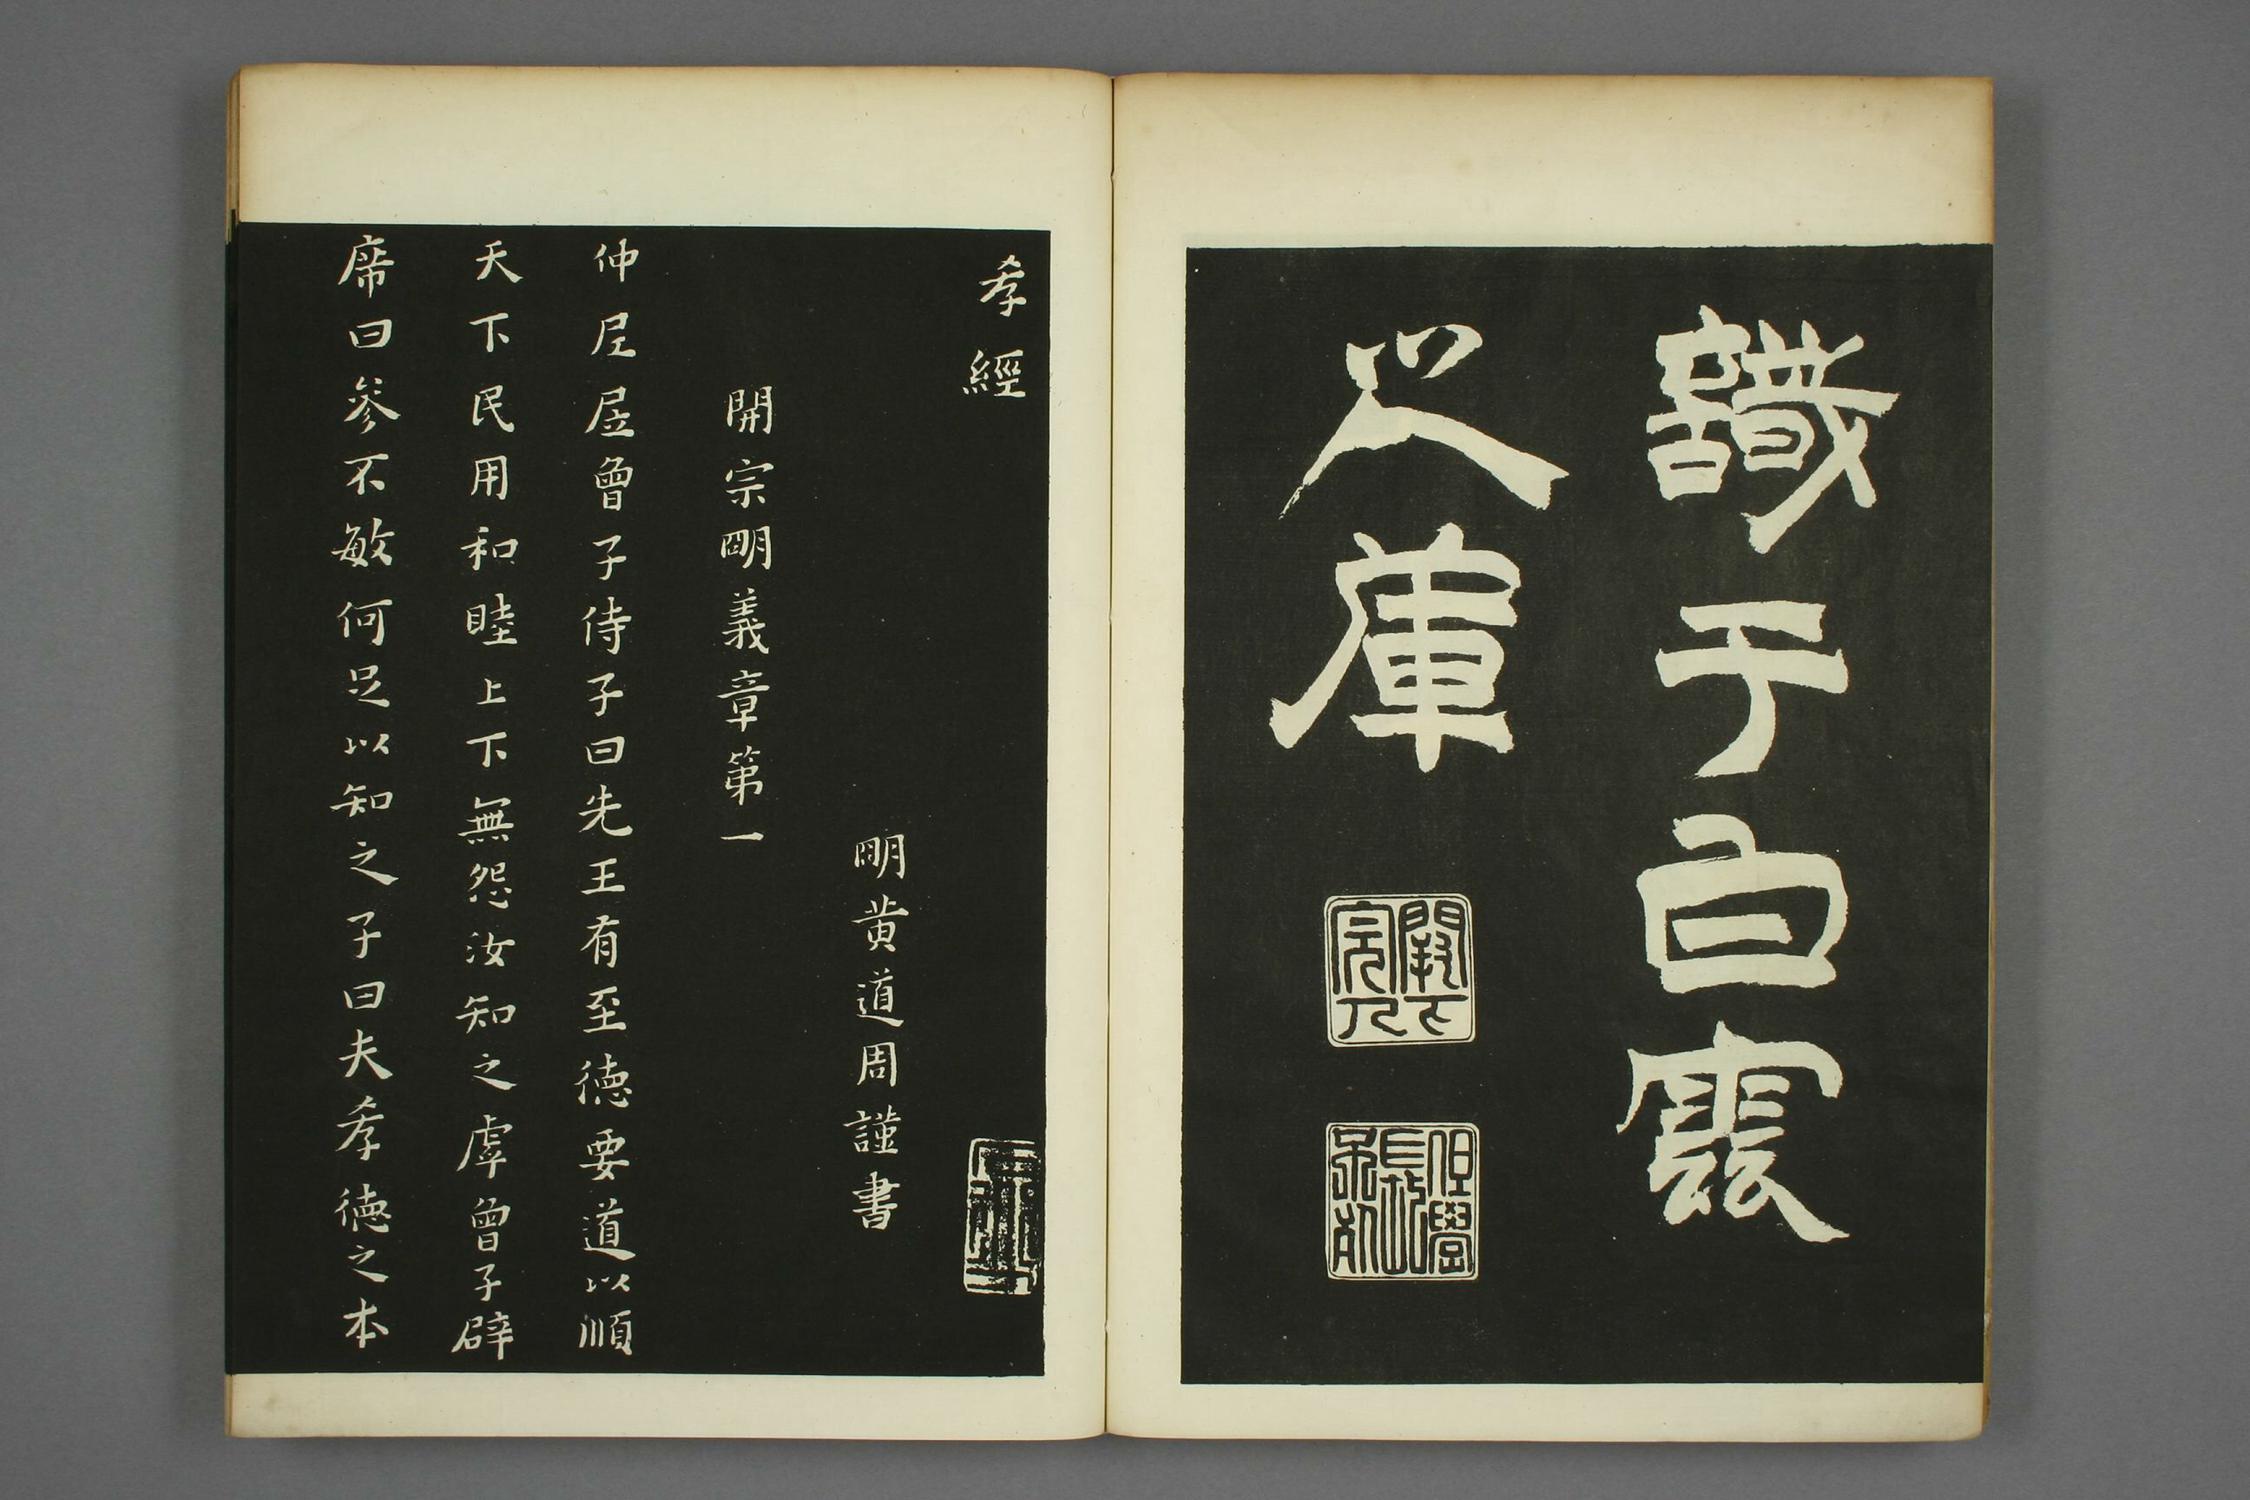 識于白雲
之庫
孝經
明黃道周謹書
開宗明義章第一
仲尼凥曾子侍子曰先王有至德要道以順
天下民用和睦上下無怨汝知之虖曾子辟
席曰參不敏何足以知之子曰夫孝德之本